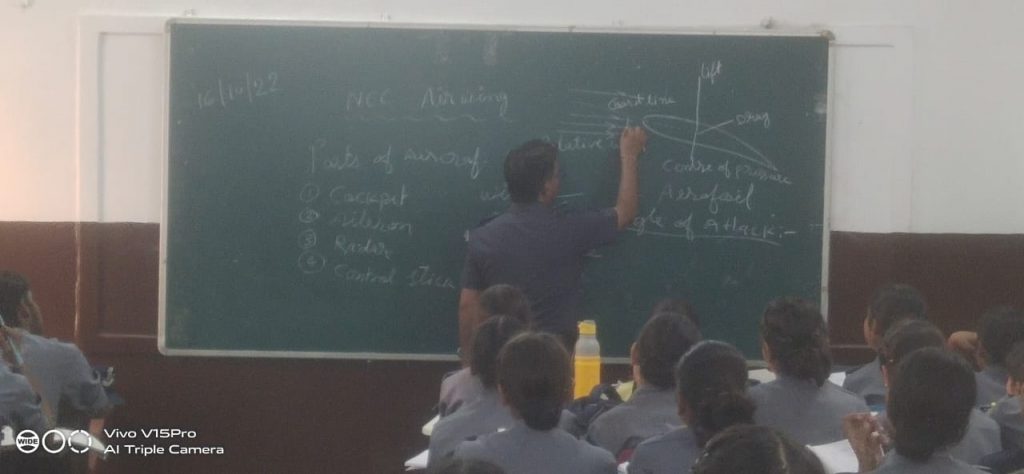 16/10/22
NCC Air wing
Parts of aircraf
① Cockpit
② Aileron
③ Radar
④ Control stick
lift
Drag
lative
Centre of pressure
Aerofoil
gle of attack:-
WIDE
Vivo V15Pro
AI Triple Camera